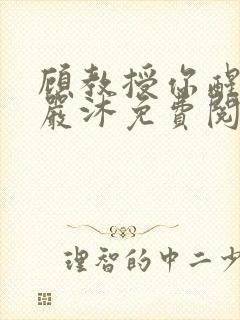 顾教授你醒
嚴沐免費閱
理智的中二少